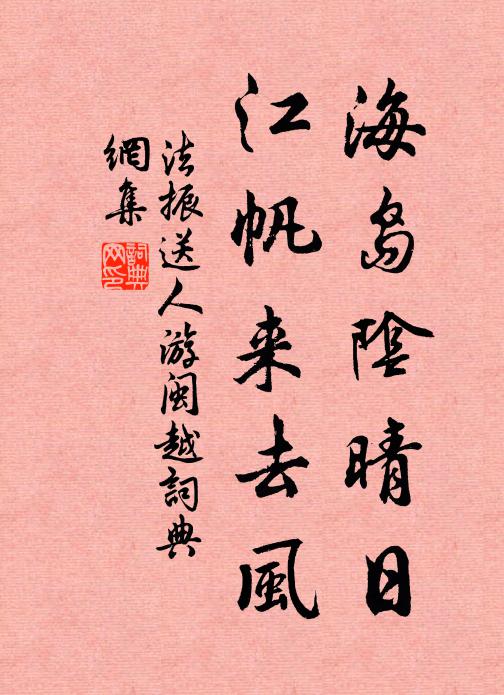 海島陰晴日
江帆来去風
法振送人游閩越詞典
網集
詞典
网印